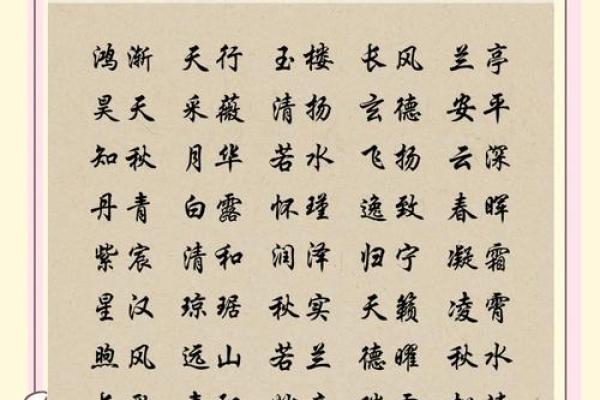 鸿渐 天行 玉楼 长风 兰亭
昊天 采薇 清扬 玄德 安平
知秋 月华 若水 飞扬 云深
丹青 白露 怀瑾 逸致 春晖
紫宸 清和 润泽 归宁 凝霜
星汉 琼琚 秋实 天籁 凌霄
煦风 远山 若兰 德曜 秋水